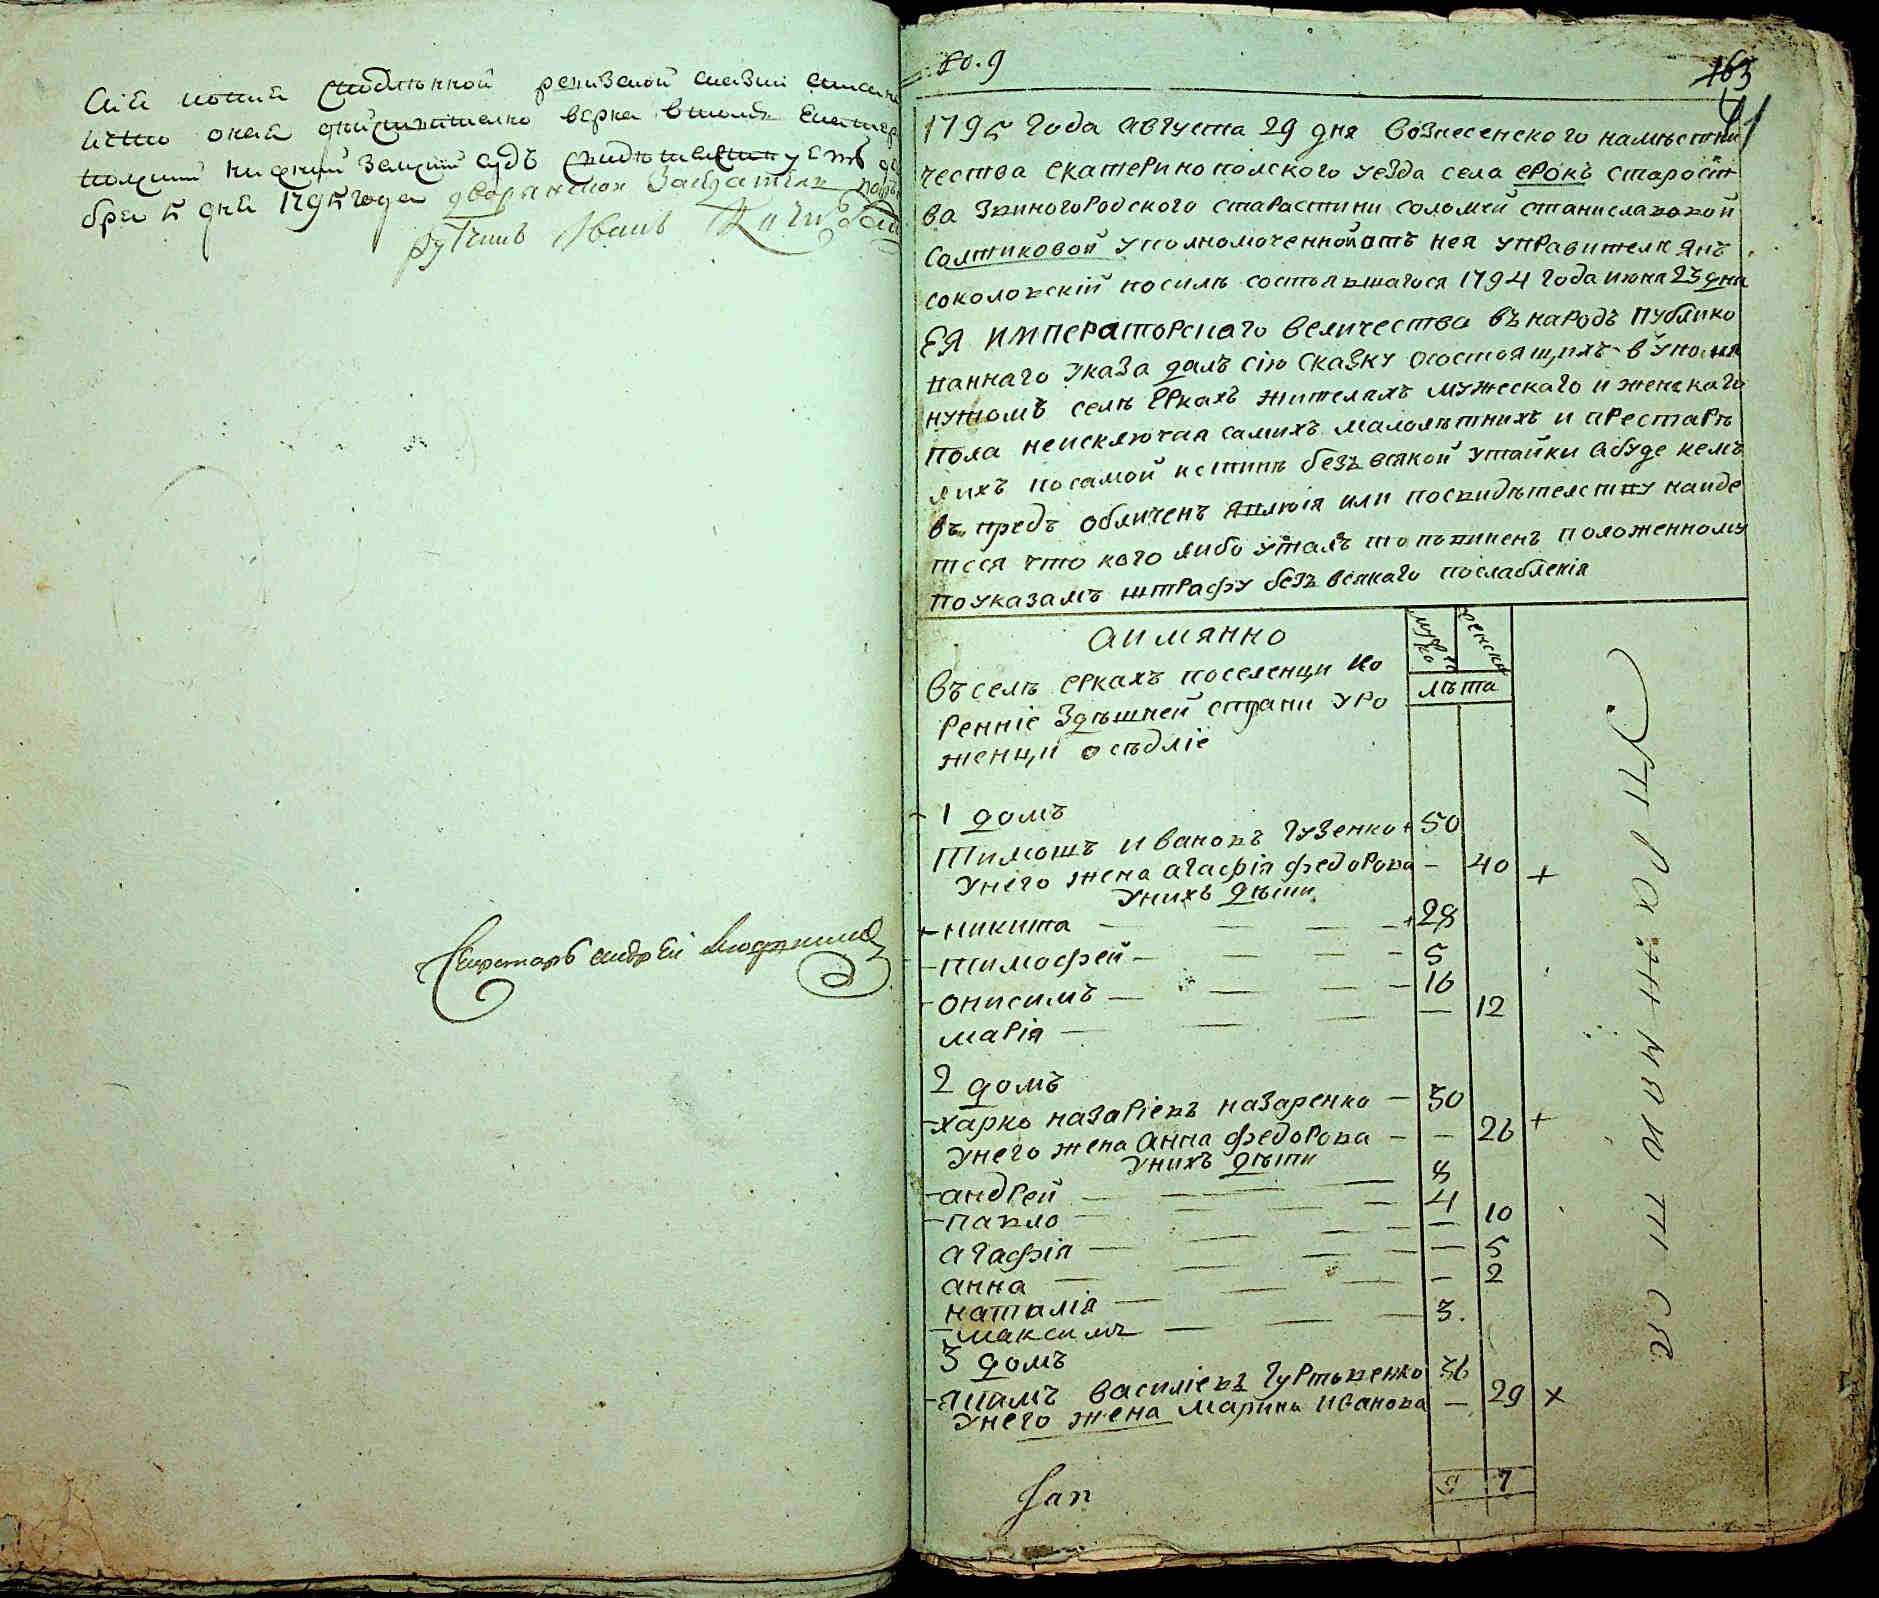 Сія копия сподлънной ревизской сказки списана
верна втомъ Екатерино
полский нижний земский судъ
бря 5 дня 1795 года дворянской Заседатель
Иванъ
Секретарь андрей
№. 9
163
41
1795 года августа 29 дня вознесенского намѣстни
чества екатеринополского уезда села ерокъ старост
ва Звиногородского старастини соломеи станиславовой
солтиковой уполномоченной отъ нея управитель Янъ
соколовскій посиле состоявшагося 1794 года июня 23 дня
ЕЯ ИМПЕРАТОРСкаго величества въ народъ публико
ваннаго указа далъ сію сказку осостоящихъ в упомя
нутомъ селѣ Еркахъ жителяхъ мужескаго и женскаго
пола неисключая самихъ малолѣтнихъ и престарѣ
лихъ посамой истинѣ безъ всякой утайки абуде кемъ
въ предъ обличенъ явлюся или посвидѣтелству найде
тсся что кого либо утаялъ то повиненъ положенному
поуказамъ штрафу безъ всякаго послабленія
аимянно
мужеско
женска
лѣта
въ селѣ еркахъ поселенци ко
ренніе здѣшней страни уро
женци осѣдліе
1 домъ
тимошъ ивановъ гузенко 50
Унего жена агафія федорова — 40 +
Унихъ дѣти
никита 28
тимофей 5
онисимъ 16
марія — 12
2 домъ
харко назаріевъ назаренко — 30
Унего жена анна федорова — — 26 +
Унихъ дѣти
андрей 8
павло 4
агафія — 10
анна — 5
наталія — 2
максимъ 3.
3 домъ
якимъ василіевъ гуртовенко 36
Унего жена марина иванова — 29 х
9 7
Jan